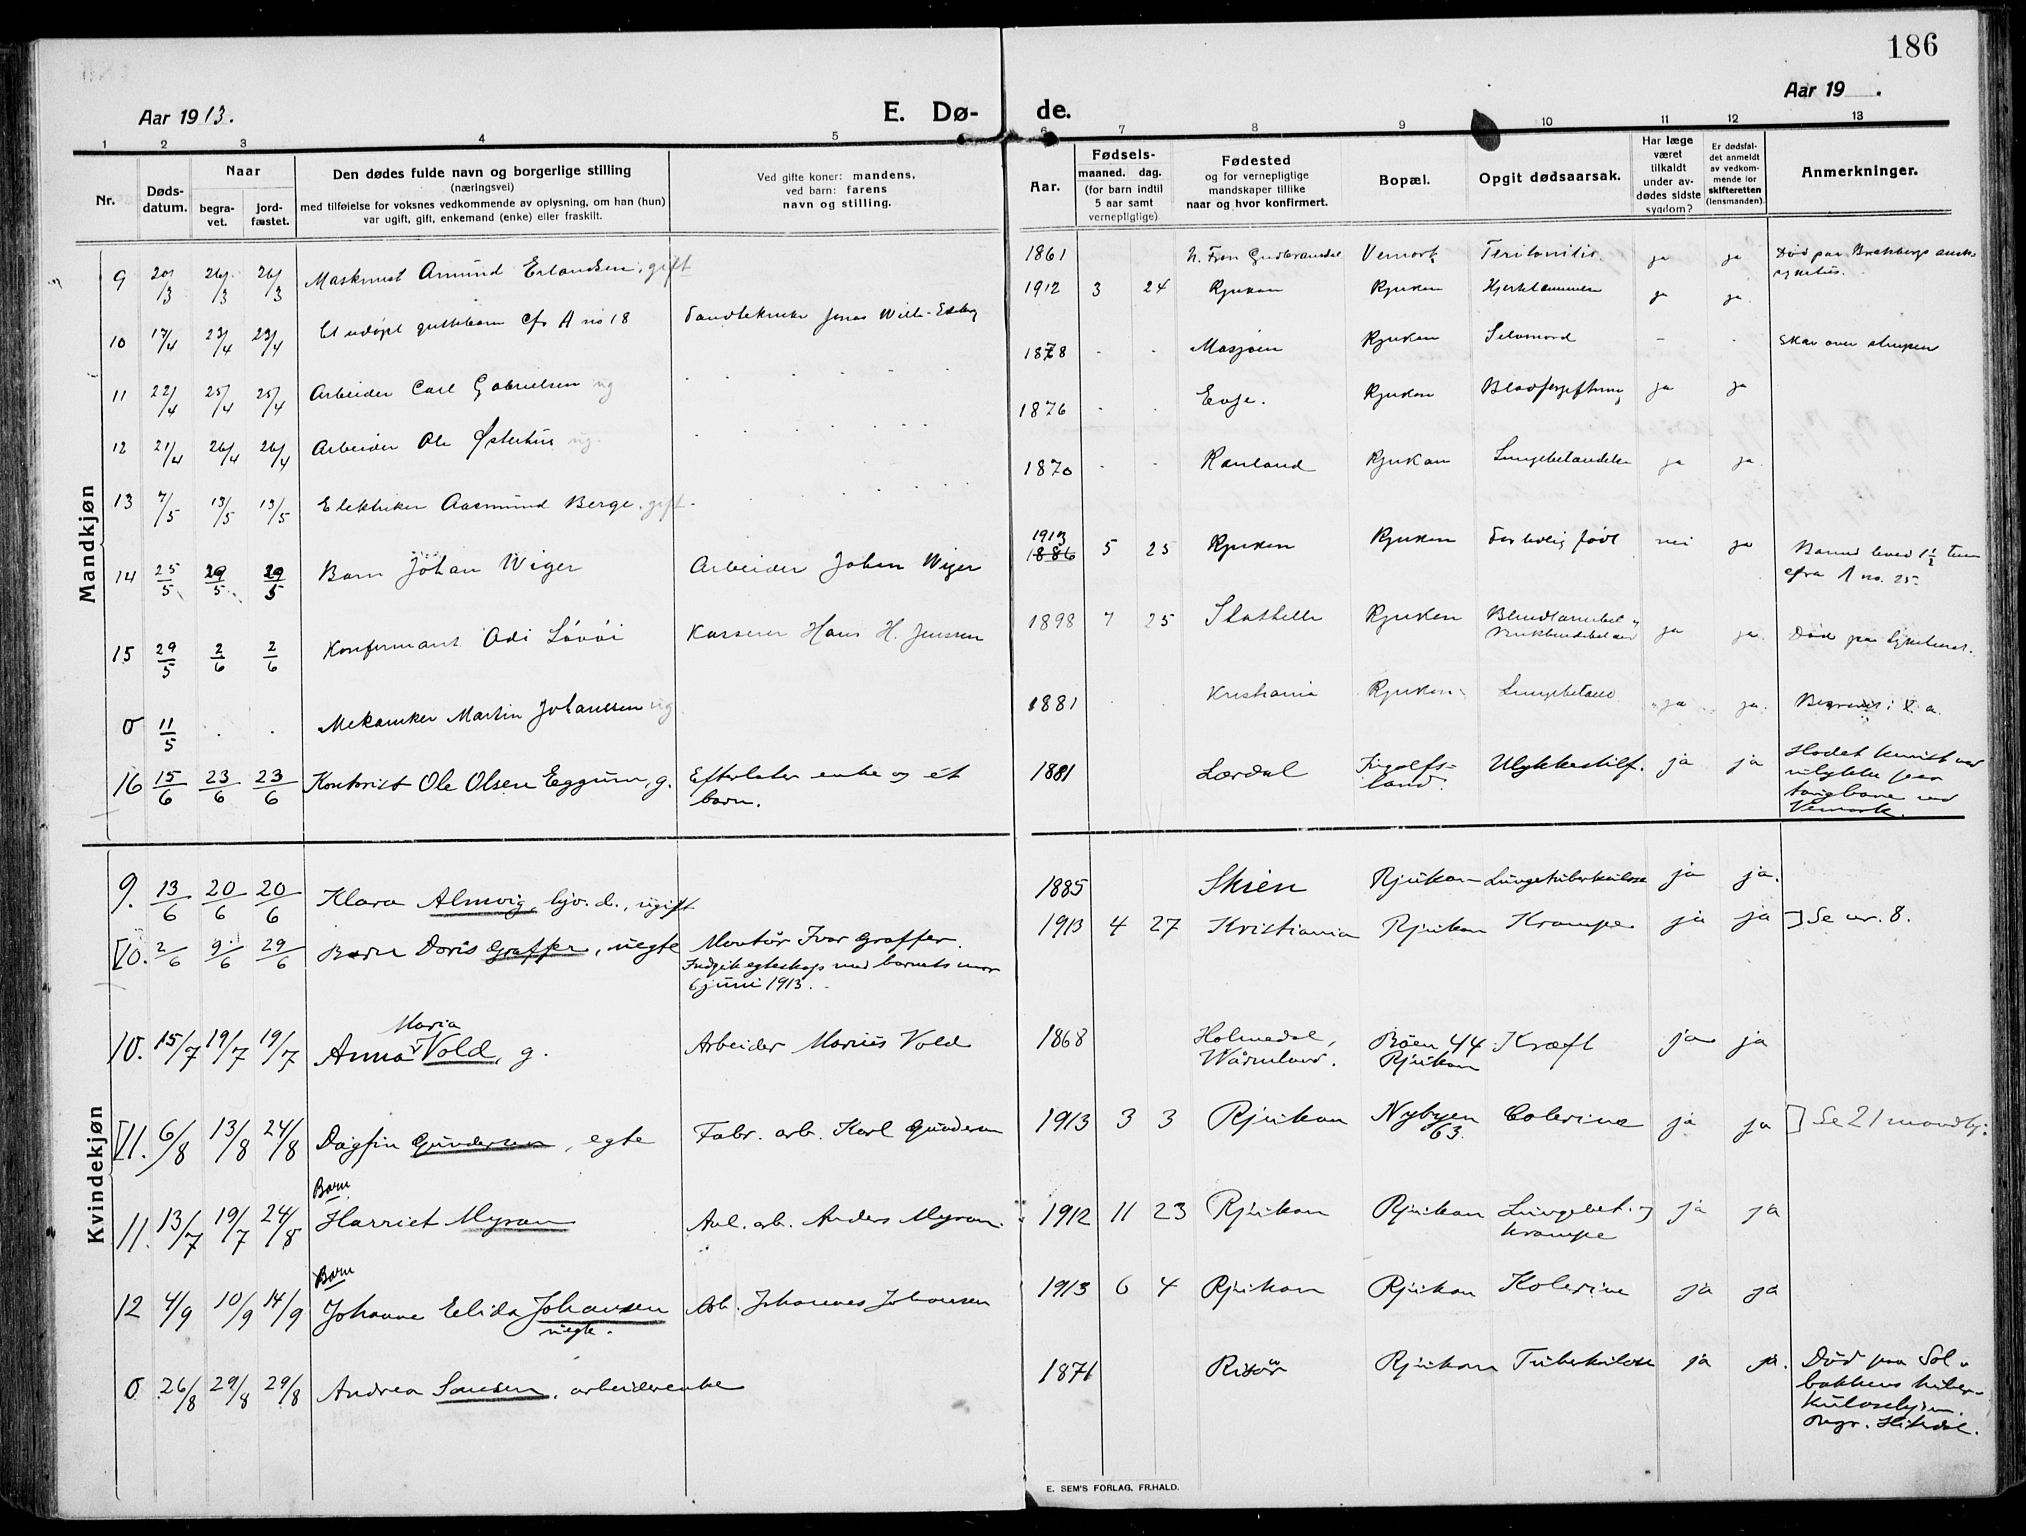 186
Aar 1913.
E. Dø-
de.
Aar 19 .
1 2 3 4 5 6 7 8 9 10 11 12 13
Nr.
Døds-
datum.
Naar
begra-
vet.
jord-
fæstet.
Den dødes fulde navn og borgerlige stilling
(næringsvei)
med tilføielse for voksnes vedkommende av oplysning, om han (hun)
var ugift, gift, enkemand (enke) eller fraskilt.
Ved gifte koner: mandens,
ved barn: farens
navn og stilling.
Aar.
Fødsels-
maaned. dag.
(for barn indtil
5 aar samt
vernepligtige)
Fødested
og for vernepligtige
mandskaper tillike
naar og hvor konfirmert.
Bopæl.
Opgit dødsaarsak.
Har læge
været
tilkaldt
under av-
dødes sidste
sygdom?
Er dødsfal-
det anmeldt
av vedkom-
mende for
skifteretten
(lensmanden).
Anmerkninger.
Mandkjøn
9 20/3 26/3 26/3 Maskinist Amund Erlandsen, gift 1861 N. Fron Gudbrandsdal Vemork Peritonitis ja ja Død paa
10 17/4 23/4 23/4 Et udøpt guttebarn cfr A no 18 Jonas 1912 3 24 Rjukan Rjukan ja ja
11 22/4 25/4 25/4 Arbeider Carl Gabrielsen ug 1878 Mosjøen Rjukan Selvmord - - Skar over strupen
12 21/4 26/4 26/4 Arbeider Ole Østerhus ug. 1876 Evje. Rjukan Blodforgiftning ja ja
13 7/5 13/5 13/5 Elektriker Aasmund Berge, gift 1870 Rauland Rjukan Lungebetændelse ja ja
14 25/5 29/5 29/5 Barn Johan Wiger Arbeider Johan Wiger 1913 1886 5 25 Rjukan Rjukan For tidlig født nei ja Barnet leved 1½ time
cfra A no. 25
15 29/5 2/6 2/6 Konfirmant Odi Løvøi Kasserer Hans H. Jenssen 1898 7 25 Stathelle Rjukan ja ja. Død paa Sykehuset.
0 11/5 . . Mekaniker Martin Johanssen ug 1881 Kristiania Rjukan Lungebetænd ja ja.
16 15/6 23/6 23/6 Kontorist Ole Olsen Eggum, g. Efterlater enke og ét
barn. 1881 Lærdal Ingolfs-
land. Ulykkestilf. ja ja Hodet knust ved
ulykke paa
ved
Vemork.
Kvindekjøn
9. 13/6 20/6 20/6 Klara Almvig, hjv. d., ugift 1885 Skien Rjukan Lungetuberkulose ja ja.
10. 2/6 9/6 29/6 Barn Doris Graffer, uegte Montør Ivar Graffer.
Indgik egteskap med barnets mor
6 juni 1913. 1913 4 27 Kristiania Rjukan Krampe ja ja Se nr. 8.
10. 15/7 19/7 19/7 Anna Maria Vold, g. Arbeider Marius Vold 1868 Holmedal,
Wärmland. Bøen 44
Rjukan Kræft ja ja
11. 6/8 13/8 24/8 Dagfin Gundersen, egte Fabr. arb. Karl Gundersen 1913 3 3 Rjukan Nybyen
63. Colerine ja ja Se 21 mandkj:
11. 13/7 19/7 24/8 Barn
Harriet Myran Anl. arb. Anders Myran. 1912 11 23 Rjukan Rjukan Lungebet. og
krampe ja ja
12 4/9 10/9 14/9 Barn
Johanne Elida Johansen
uegte. Arb. Johannes Johansen 1913 6 4 Rjukan Rjukan Kolerine ja ja
0 26/8 29/8 29/8 Andrea Sansen, arbeiderenke 1871 Risør Rjukan Tuberkulose ja ja. Død paa Sol-
bakkens tuber-
kulosehjem.
Begr. Hitterdal.
E. SEM'S FORLAG, FR.HALD.